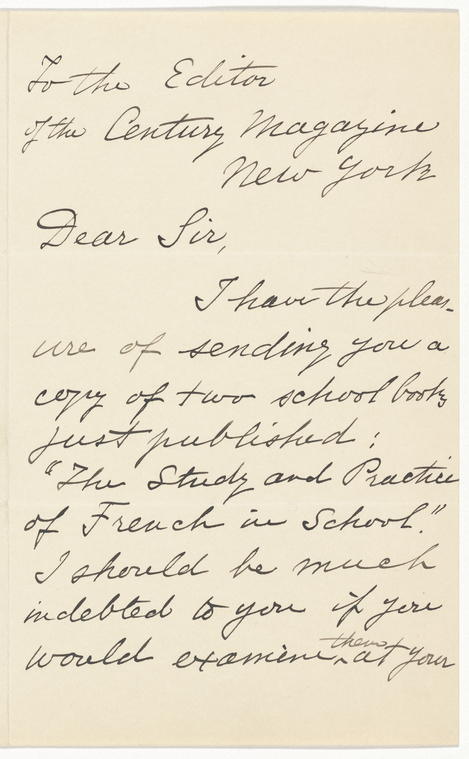 To the Editor
of the Century Magazine
New York
Dear Sir,
I have the pleas-
ure of sending you a
copy of two school books
just published:
"The Study and Practice
of French in School."
I should be much
indebted to you if you
would examine them at your